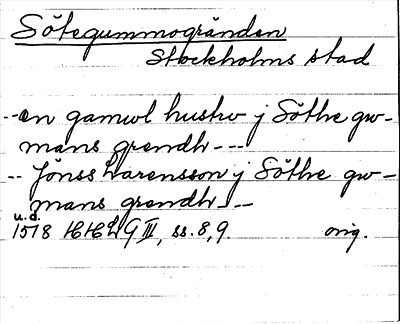 Sötegummogränden
Stockholms stad
--en gamul hustrv j Söthe gw-
mans grendh---
-- Jönss Larensson j Söthe gw-
mans grendh---
u.d.
1578 HHL G III, ss. 8, 9. orig.